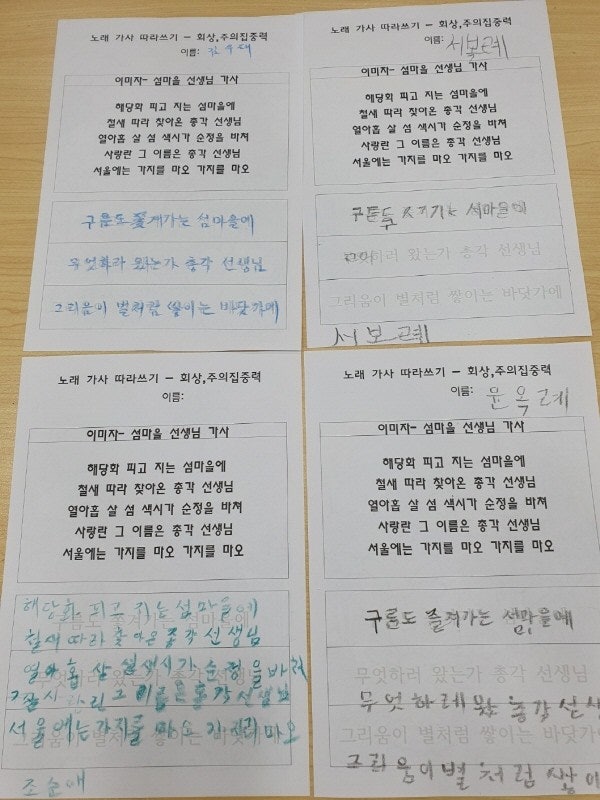 노래 가사 따라쓰기 - 회상,주의집중력
이름:
이미자- 섬마을 선생님 가사
해당화 피고 지는 섬마을에
철새 따라 찾아온 총각 선생님
열아홉 살 섬 색시가 순정을 바쳐
사랑한 그 이름은 총각 선생님
서울에는 가지를 마오 가지를 마오
구름도 쫓겨가는 섬마을에
무엇하라 왔는가 총각 선생님
그리움이 별처럼 쌓이는 바닷가에
노래 가사 따라쓰기 - 회상,주의집중력
이름: 서보례
이미자- 섬마을 선생님 가사
해당화 피고 지는 섬마을에
철새 따라 찾아온 총각 선생님
열아홉 살 섬 색시가 순정을 바쳐
사랑한 그 이름은 총각 선생님
서울에는 가지를 마오 가지를 마오
구름도 쫓겨가는 섬마을에
무엇하러 왔는가 총각 선생님
그리움이 별처럼 쌓이는 바닷가에
서보례
노래 가사 따라쓰기 - 회상,주의집중력
이름:
이미자- 섬마을 선생님 가사
해당화 피고 지는 섬마을에
철새 따라 찾아온 총각 선생님
열아홉 살 섬 색시가 순정을 바쳐
사랑한 그 이름은 총각 선생님
서울에는 가지를 마오 가지를 마오
해당화 피고 지는 섬마을에
철새 따라 찾아온 총각 선생님
열아홉 살 섬색시가 순정을 바쳐
그 이름은 총각 선생님
서울에는 가지를 마오 가지를 마오
조순애
노래 가사 따라쓰기 - 회상,주의집중력
이름: 윤옥례
이미자- 섬마을 선생님 가사
해당화 피고 지는 섬마을에
철새 따라 찾아온 총각 선생님
열아홉 살 섬 색시가 순정을 바쳐
사랑한 그 이름은 총각 선생님
서울에는 가지를 마오 가지를 마오
구름도 쫓겨가는 섬마을에
무엇하러 왔는가 총각 선생님
무엇하레 왔 총각 선생
그리움이 별처럼 쌓이는 바닷가에
그리움이 별처럼 쌓이